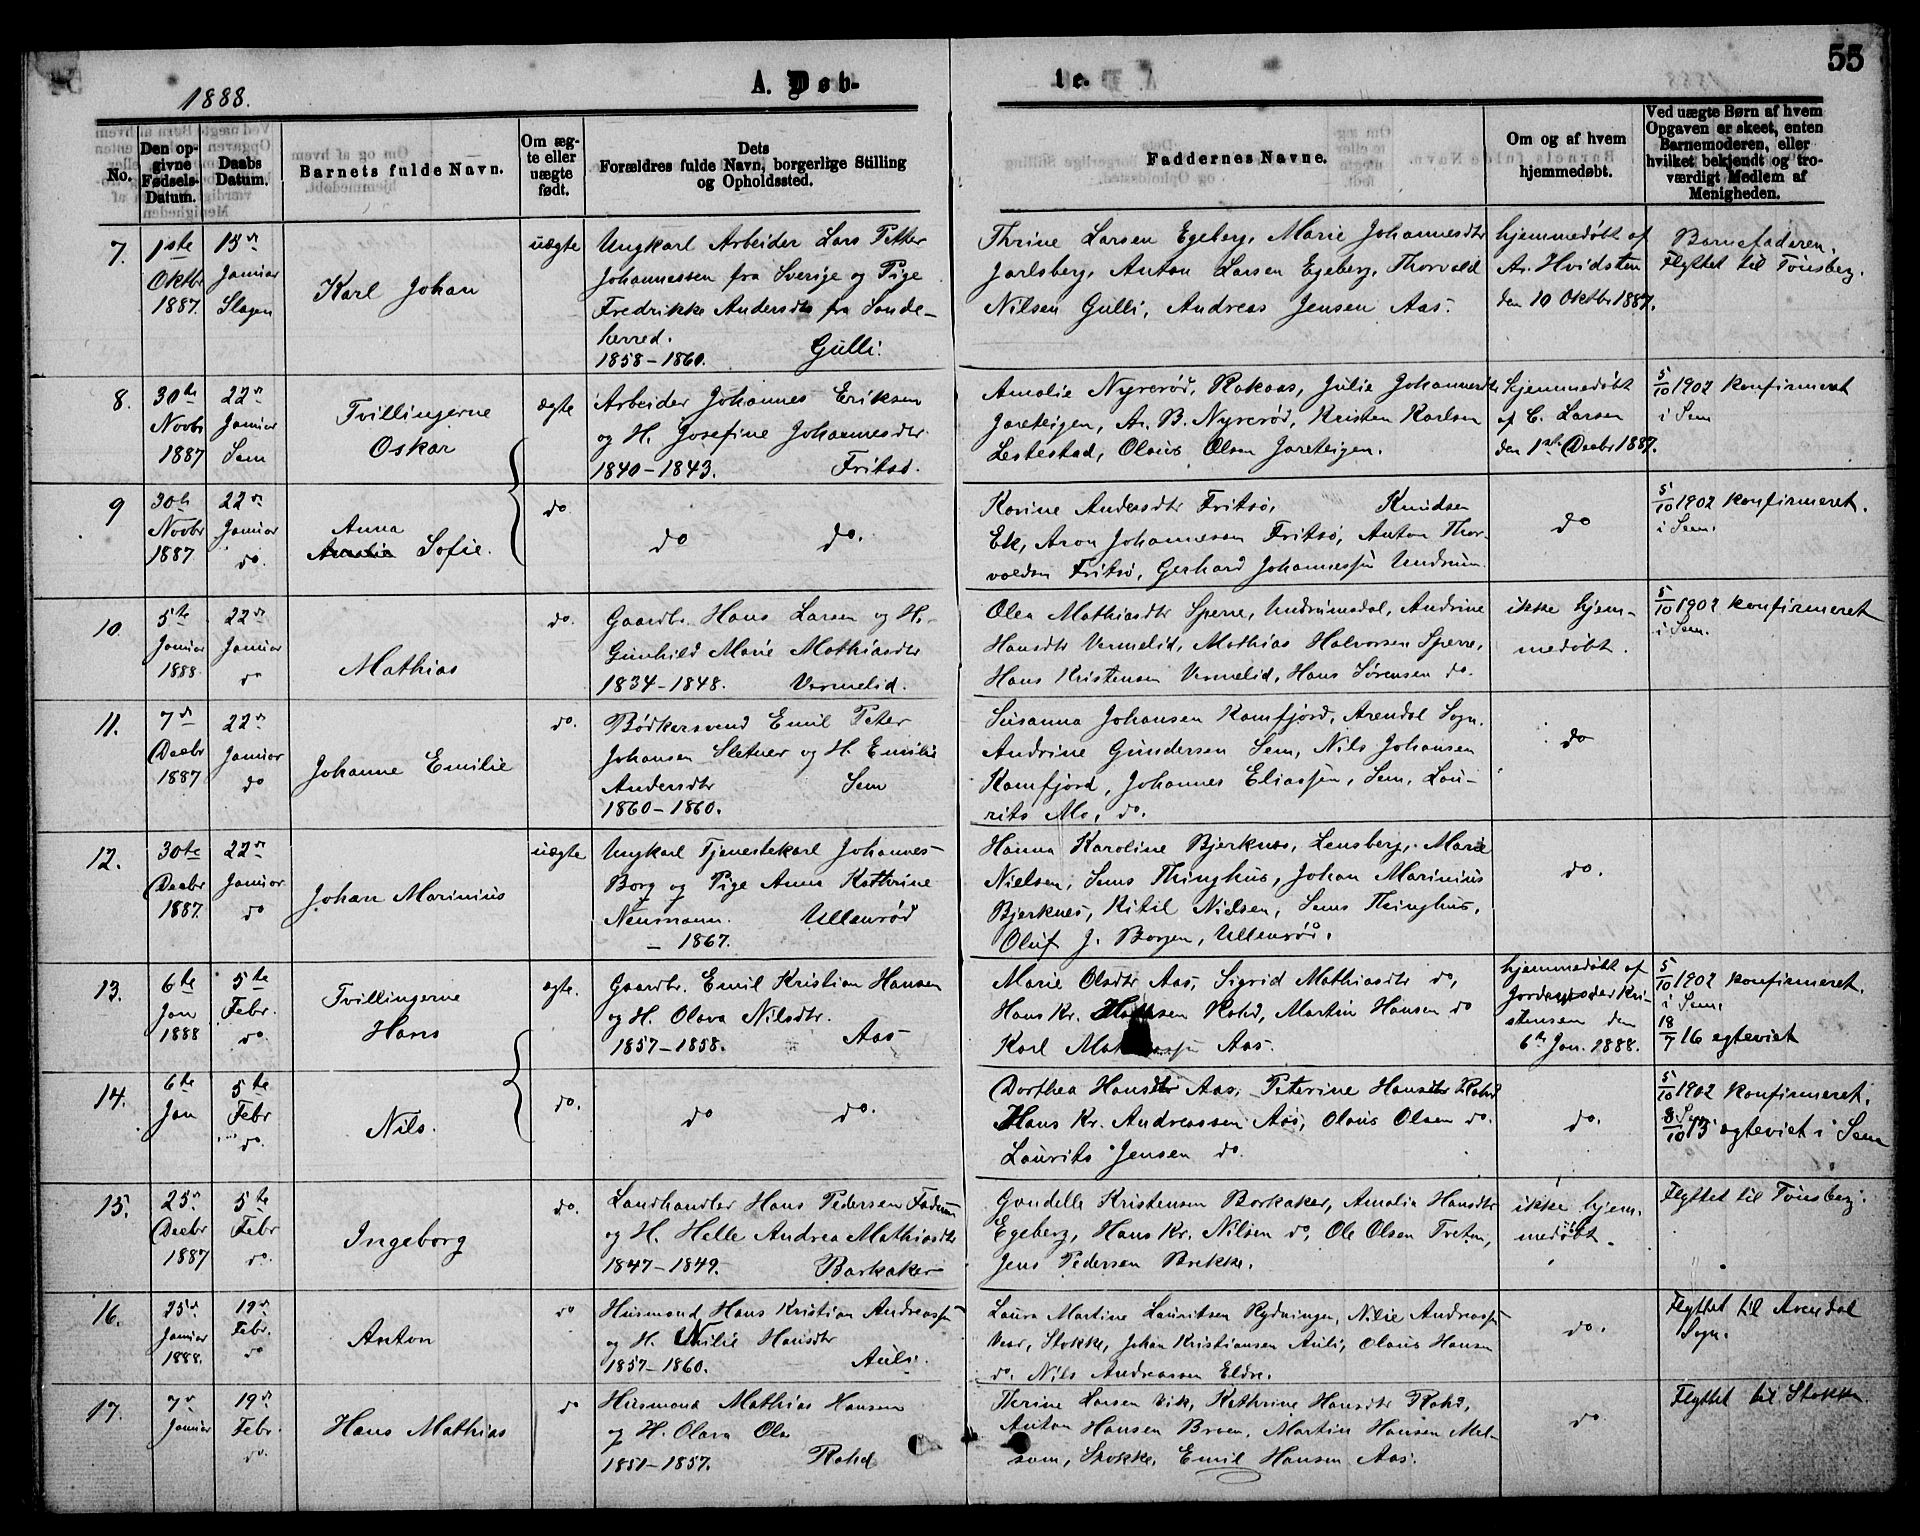 55
1888.
A. Døb-
te.
No.
Den op-
givne
Fødsels-
Datum.
Daabs
Datum.
Barnets fulde Navn.
Om æg-
te eller
uægte
født.
Dets
Forældres fulde Navn, borgerlige Stilling
og Opholdssted.
Faddernes Navne.
Om og af hvem
hjemmedøbt.
Ved uægte Børn af hvem
Opgaven er skeet, enten
Barnemoderen, eller
hvilket bekjendt og tro-
værdigt Medlem af
Menigheden.
7.
1ste
Oktbr
1887.
15de
Januar
Slagen
Karl Johan
uægte
Ungkarl Arbeider Lars Petter
Johannessen fra Sverige og Pige
Fredrikke Andersdtr fra Sande-
herred.
1858-1860. Gulli.
Thrine Larsen Egeberg, Marie Johannesdtr
Jarlsberg, Anton Larsen Egeberg, Thorvald
Nilsen Gulli, Andreas Jensen Aas.
hjemmedøbt af
A. Hvidsten
den 10 Oktbr 1887.
Barnefaderen.
Flyttet til Tønsberg.
8.
30te
Novbr
1887
22de
Januar
Sem
Tvillingerne
Oskar
ægte
Arbeider Johannes Eriksen
og H. Josefine Johannesdtr
1840-1843. Fritsø.
Amalie Nyrerød, Rakaas, Julie Johannesdtr
Jareteigen, A. B. Nyrerød, Kristen Karlsen
Lestestad, Olaus Olsen Jareteigen.
hjemmedøbt
af C. Larsen
den 1ste Decbr 1887.
5/10 1902 konfirmeret
i Sem
9
30te
Novbr
1887.
22de
Januar
do.
Anna
Amalia Sofie.
do.
do do.
Karine Andersdtr Fritsø, Knudsen
Ek, Aron Johannessen Fritsø, Anton Thor-
valdsen Fritsø, Gerhard Johannessen Undrum.
do
5/10 1902 konfirmeret.
i Sem.
10.
5te
Januar
1888.
22de
Januar
do
Mathias
do.
Gaardbr. Hans Larsen og H.
Gunhild Marie Mathiasdtr
1834-1848. Vermelid.
Olea Mathiasdtr Sperre, Undrumsdal, Andrine
Hansdtr Vermelid, Mathias Halvorsen Sperre,
Hans Kristensen Vermelid, Hans Sørensen do.
ikke hjem-
medøbt.
5/10 1902 konfirmeret
i Sem.
11.
7de
Decbr
1887
22de
Januar
do
Johanne Emilie
do.
Bødkersvend Emil Peter
Johansen Sletner og H. Emilie
Andersdtr Sem
1860-1860.
Susanna Johansen Kamfjord, Arendal Sogn.
Andrine Gundersen Sem, Nils Johansen
Kamfjord, Johannes Eliassen, Sem, Lau-
rits Mo, do.
do
12.
30te
Decbr
1887.
22de
Januar.
do
Johan Marinius
uægte
Ungkarl Tjenestekarl Johannes
Borg og Pige Anna Kathrine
Neumann. Ullenrød
- 1867.
Hanna Karoline Bjerknes, Lensberg, Marie
Nielsen, Sems Thinghus, Johan Marinius
Bjerknes, Kitil Nielsen, Sems Thinghus,
Oluf J. Borgen, Ullenrød.
do.
13.
6te
Jan
1888
5te
Febr.
do.
Tvillingerne
Hans
ægte.
Gaardbr. Emil Kristian Hansen
og H. Olava Nilsdtr.
1857-1858. Aas
Marie Olsdtr Aas, Sigrid Mathiasdtr do,
Hans Kr. Hansen Rohd, Martin Hansen do
Karl Aas.
hjemmedøbt af
Jordemoder Kri-
stensen den
6te Jan. 1888.
5/10 1902 konfirmeret.
i Sem.
18/7 16 egteviet
14.
6te
Jan
5te
Febr
do.
Nils.
do.
do do.
Dorthea Hansdtr Aas, Peterine Hansdtr Rohd
Hans Kr. Andreassen Aas, Olaus Olsen do.
Laurits Jensen do.
do.
5/10 1902 konfirmeret.
i Sem
8/10 13 egteviet i Sem
15.
25de
Decbr
1887
5te
Febr
do.
Ingeborg
do.
Landhandler Hans Pedersen Fadum
og H. Helle Andrea Mathiasdtr
1847-1849. Barkaker
Gundelle Kristensen Barkaker, Amalia Hansdtr
Egeberg, Hans Kr. Nilsen do, Ole Olsen Treton,
Jens Pedersen Brekke.
ikke hjem-
medøbt.
Flyttet til Tønsberg.
16.
25de
Januar
1888.
19de
Febr.
do
Anton
do
Husmand Hans Kristian Andreassen
og H. Nilie Hansdtr
1857-1860. Auli.
Laura Martine Lauritsen Rydningen, Nilie Andreassen
Vear, Stokke, Johan Kristiansen Auli, Olaus Hansen
do. Nils Andreassen Eldre.
do.
Flyttet til Arendal
Sogn.
17.
7de
Januar
19de
Febr.
do.
Hans Mathias
do
Husmand Mathias Hansen
og H. Olava Ols
1851-1857. Rohd
Thrine Larsen Vik, Kathrine Hansdtr Rohd,
Anton Hansen Broen, Martin Hansen Mel-
som, Stokke, Emil Hansen Aas.
do
Flyttet til Stokke.